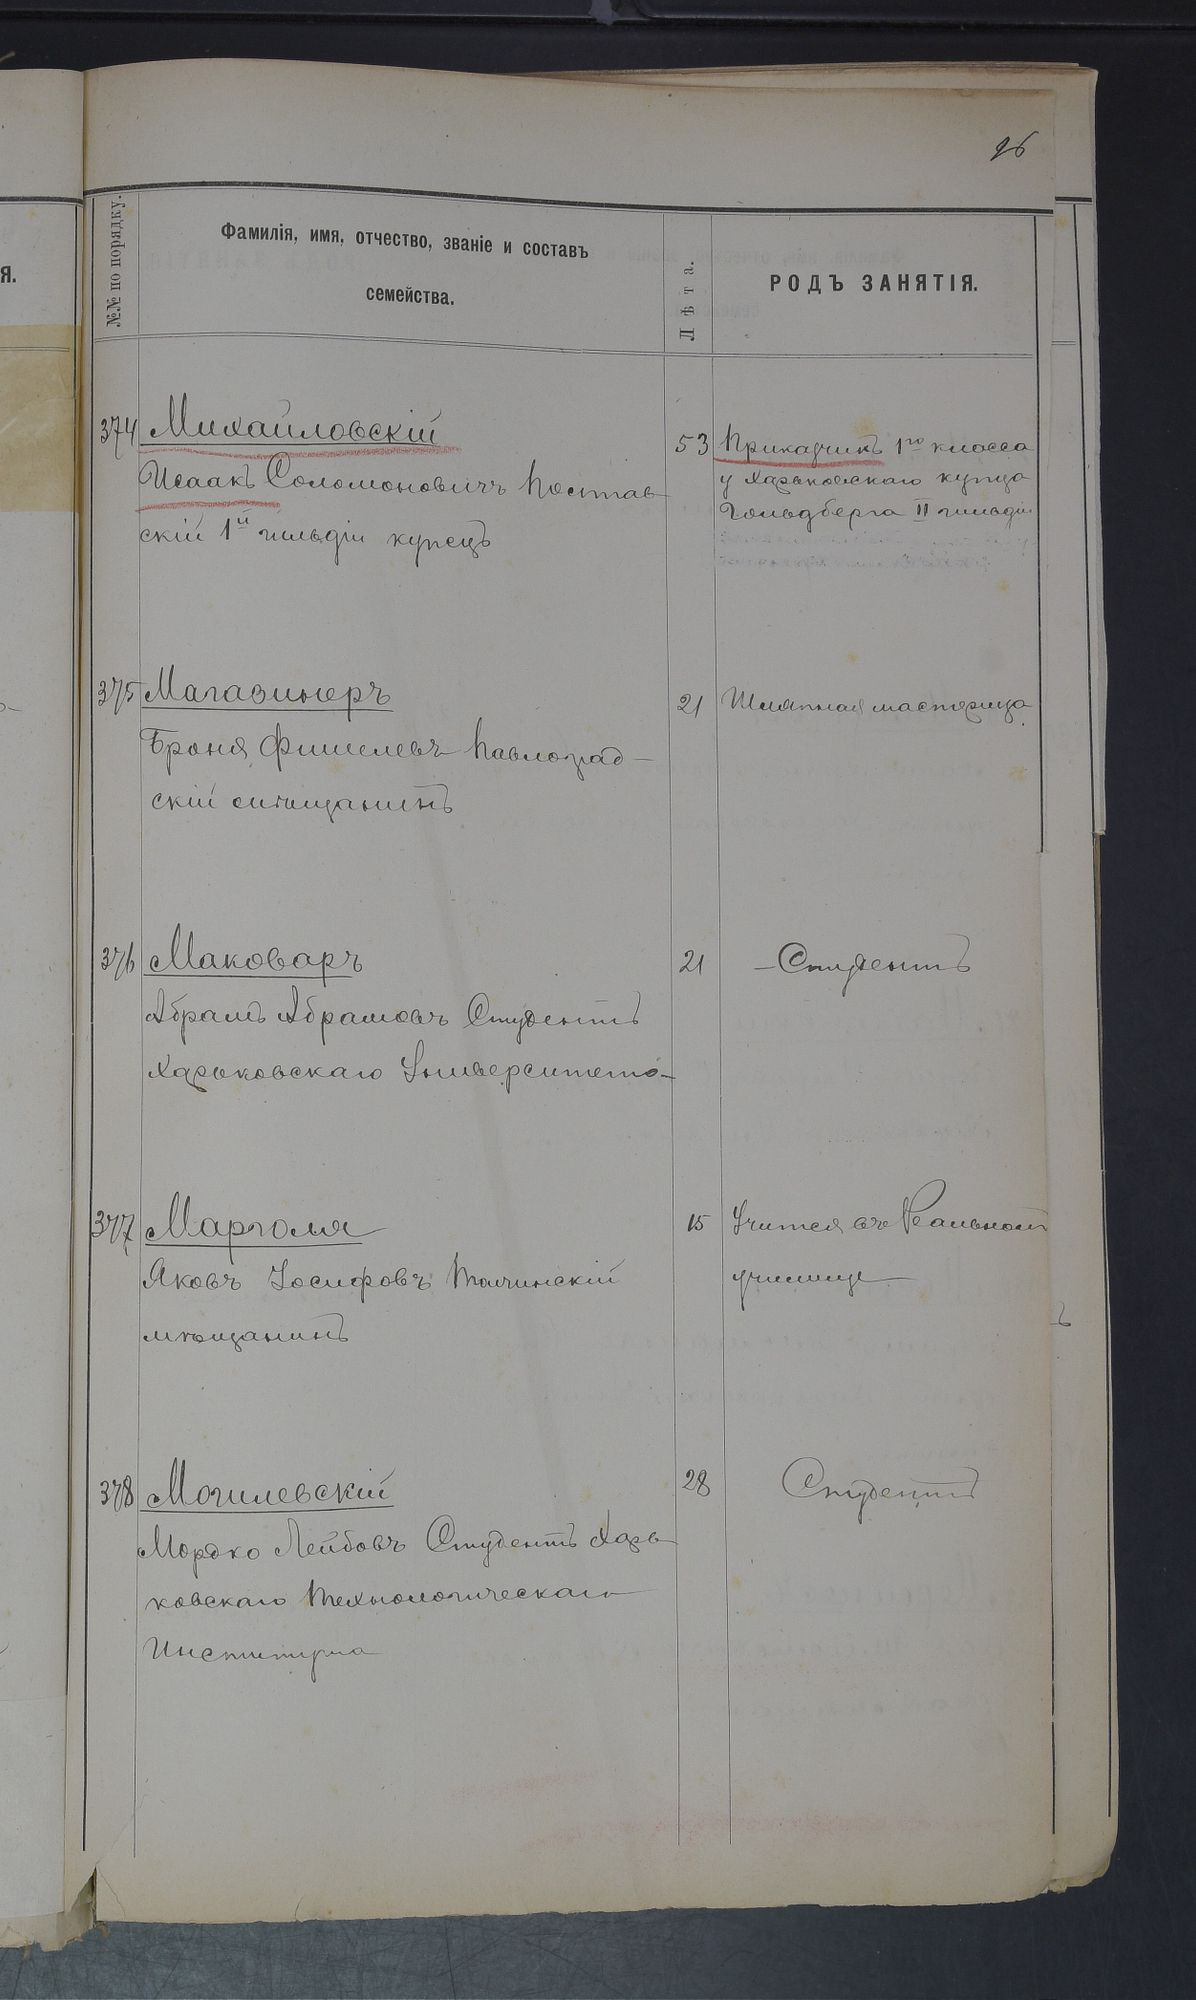 96
№№ по порядку.
Фамилія, имя, отчество, званіе и составъ
семейства.
Лѣта.
РОДЪ ЗАНЯТІЯ.
Я.
374 Михайловскій 53 Прикащикъ 1го класса
Исаакъ Соломоновичъ у Харьковскаго купца
скій 1й гильдіи купецъ Гольдберга II гильдіи
375 Магазинеръ 21 Шляпная мастерица
Броня Фишелевъ Павлоград-
скій мѣщанинъ
376 Маковаръ 21 - Студентъ
Абрамъ Абрамовъ Студентъ
Харьковскаго Университета-
377 Марголя 15 Учится въ Реальном
Яковъ Іосифовъ училище
мѣщанинъ
378 Могилевскій 28 Студентъ
Мордко Лейбовъ Студентъ Харь
ковскаго Технологическаго
Института